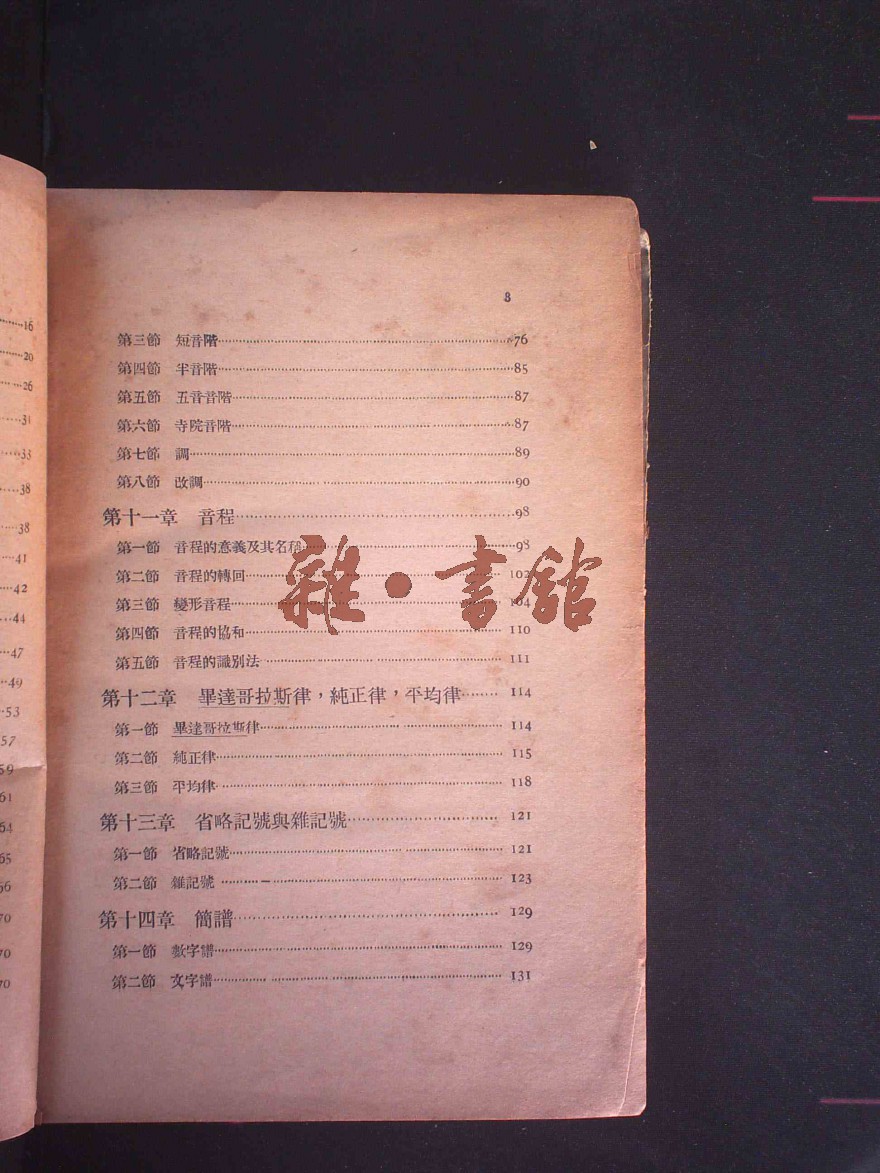 16
20
26
31
33
38
38
41
42
44
47
49
53
57
59
61
64
65
66
70
70
70
8
第三節 短音階………76
第四節 半音階………85
第五節 五音音階………87
第六節 寺院音階………87
第七節 調………89
第八節 改調………90
第十一章 音程………98
第一節 音程的意義及其名稱………98
第二節 音程的轉回………102
第三節 變形音程………104
第四節 音程的協和………110
第五節 音程的識別法………111
第十二章 畢達哥拉斯律，純正律，平均律………114
第一節 畢達哥拉斯律………114
第二節 純正律………115
第三節 平均律………118
第十三章 省略記號與雜記號………121
第一節 省略記號………121
第二節 雜記號………123
第十四章 簡譜………129
第一節 數字譜………129
第二節 文字譜………131
雜·書館